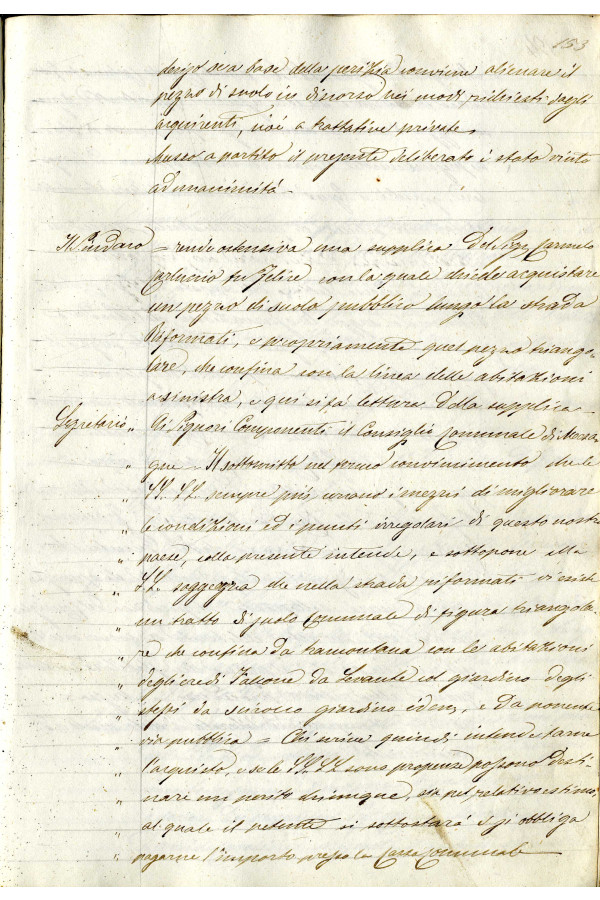 153
sia base della perizia conviene alienare il
pezzo di suolo in discorso nei modi richiesti dagli
acquirenti, cioè a trattative private.
Messo a partito il presente deliberato è stato vinto
ad unanimità.
Il Sindaco = rende ostensiva una supplica del Sigr Carmelo
fu Felice con la quale chiede acquistare
un pezzo di suolo pubblico lungo la strada
Riformati, e propriamente quel pezzo triango-
lare, che confina con la linea delle abitazioni
a sinistra, e qui si fà lettura della supplica –
Segretario „ Ai Signori Componenti il Consiglio Comunale di
„ gne – Il sottoscritto nel fermo convincimento che le
„ SS. LL. sempre più curano i mezzi di migliorare
„ le condizioni ed i punti irregolari di questo nostro
„ paese, colla presente intende, e sottopone alla
„ S.L. che nella strada riformati vi esiste
„ un tratto di suolo Comunale di figura triangola-
„ re che confina da tramontana con le abitazioni
„ degli eredi Falcone da Levante col giardino degli
„ stessi da scirocco giardino idem, e da ponente
„ via pubblica = Chi scrive quindi intende farne
„ l'acquisto, e se le SS. LL. sono propense possono desti-
„ nare un perito chiunque, sia pel relativo estimo,
„ al quale il petente si sottostarà e si obbliga
„ pagarne l'importo presso la Cassa Comunale